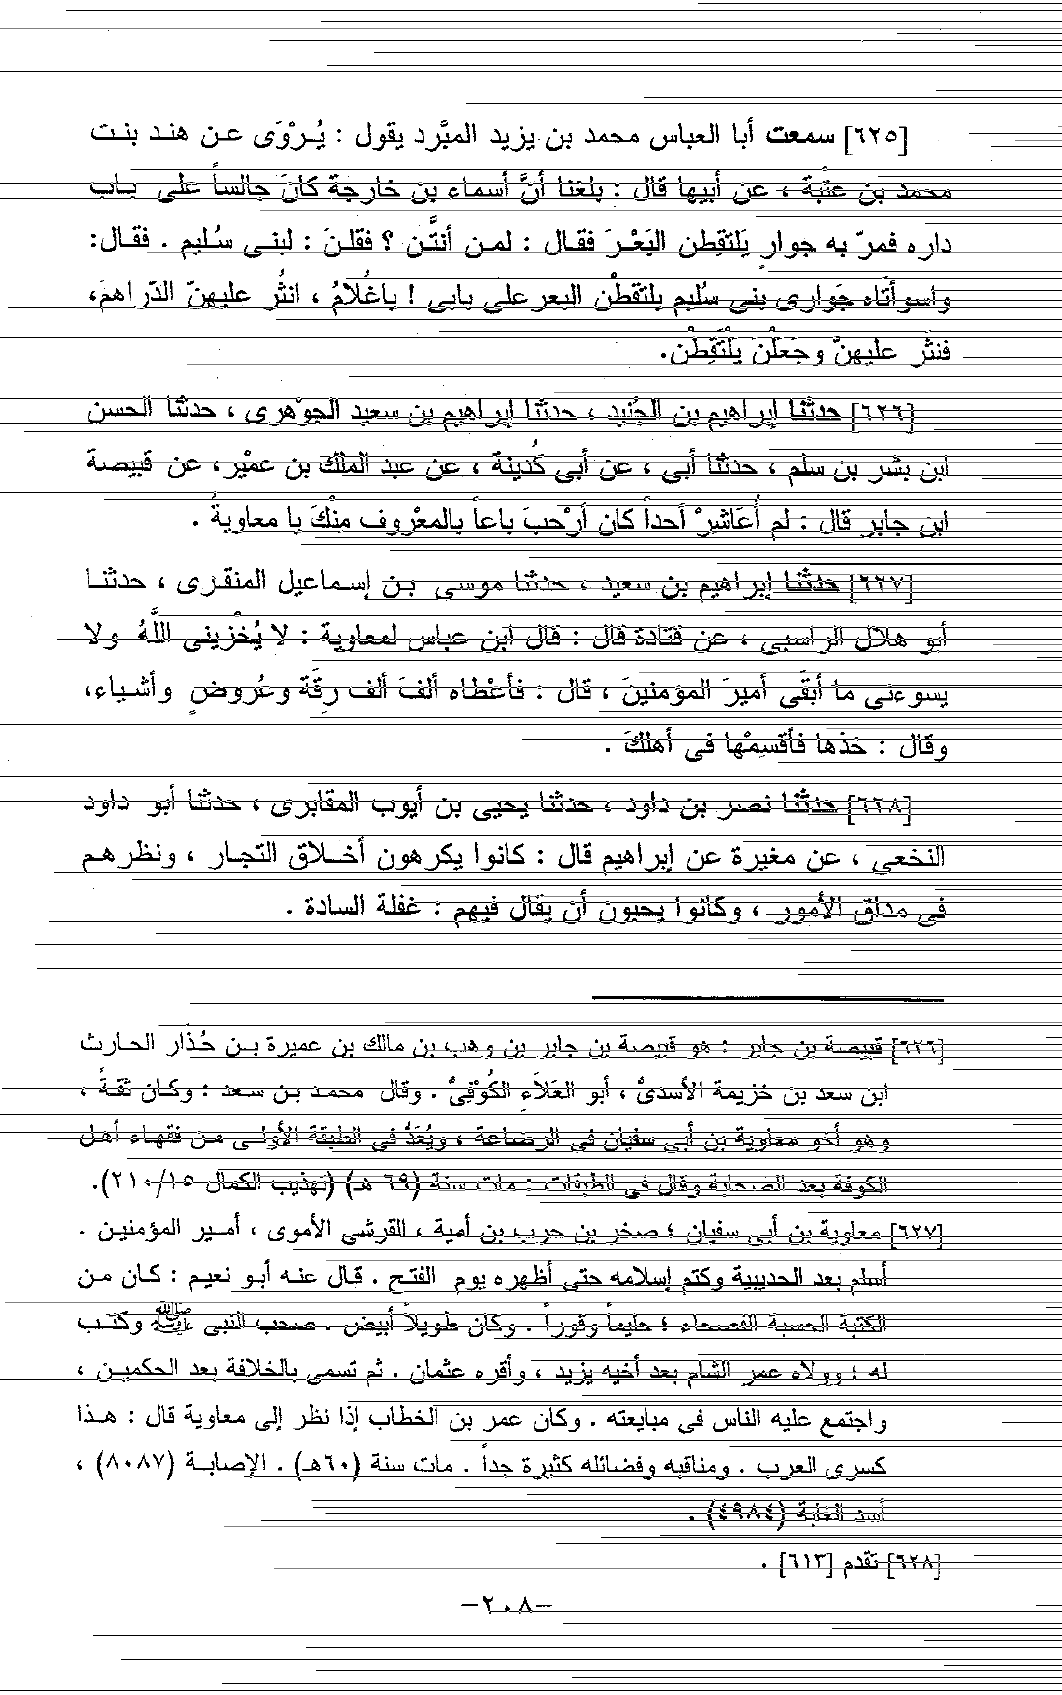 [٦٢٥] سمعت أبا العباس محمد بن يزيد المبَّرد يقول : يُرْوَى عن هند بنت
محمد بن عتبة ، عن أبيها قال : بلغنا أنَّ أسماء بن خارجة كانَ جالساً على باب
داره فمرّ به جوارٍ يَلتقِطن البَعْرَ فقال : لمن أنتَّن ؟ فقلنَ : لبنى سُليم . فقال:
واسوأتاه جَوارى بنى سُليم يلتقطْن البعر على بابى ! ياغُلامُ ، انثُر عليهنّ الدّراهمَ،
فنثر عليهنّ وجَعلْنَ يلْتَقِطْن.
[٦٢٦] حدثنا إبراهيم بن الجُنيد ، حدثنا إبراهيم بن سعيد الجوْهرى ، حدثنا الحسن
ابن بشر بن سلم ، حدثنا أبى ، عن أبى كُدينة ، عن عبد الملك بن عميْر، عن قبيصة
ابن جابر قال : لم أُعَاشرْ أحداً كان أرْحبَ باعاً بالمعْروف منْكَ يا معاويةُ .
[٦٢٧] حدثنا إبراهيم بن سعيد ، حدثنا موسى بن إسماعيل المنقرى ، حدثنا
أبو هلال الراسبى ، عن قتادة قال : قال ابن عباس لمعاوية : لا يُخْزينى اللَّهُ ولا
يسوءنى ما أبقَى أميرَ المؤمنينَ ، قال : فأعْطاه ألفَ ألف رِقَة وعُروضٍ وأشياء،
وقال : خذها فأقسِمْها فى أهلكَ .
[٦٢٨] حدثنا نصر بن داود ، حدثنا يحيى بن أيوب المقابرى ، حدثنا أبو داود
النخعى ، عن مغيرة عن إبراهيم قال : كانوا يكرهون أخلاق التجار ، ونظرهم
فى مداق الأمور ، وكانوا يحبون أن يقال فيهم : غفلة السادة .
[٦٢٦] قبيصة بن جابر : هو قبيصة بن جابر بن وهب بن مالك بن عميرة بن حُذار الحارث
ابن سعد بن خزيمة الأسدىُّ ، أبو العَلاَءِ الكُوْفِىُّ . وقال محمد بن سعد : وكان ثقةً ،
وهو أخو معاوية بن أبى سفيان فى الرضاعة ، ويُعَدُّ فى الطبقة الأولى من فقهاء أهل
الكوفة بعد الصحابة وقال فى الطبقات : مات سنة (٦٩ هـ) (تهذيب الكمال ٢١٠/١٥).
[٦٢٧] معاوية بن أبى سفيان ؛ صخر بن حرب بن أمية ، القرشى الأموى ، أمير المؤمنين .
أسلم بعد الحديبية وكتم إسلامه حتى أظهره يوم الفتح . قال عنه أبو نعيم : كان من
الكتبة الحسبة الفصحاء ؛ حليماً وقوراً . وكان طويلاً أبيض . صحب النبى ﷺ وكتب
له ؛ وولاه عمر الشام بعد أخيه يزيد ، وأقره عثمان . ثم تسمى بالخلافة بعد الحكمين ،
واجتمع عليه الناس فى مبايعته . وكان عمر بن الخطاب إذا نظر إلى معاوية قال : هذا
كسرى العرب . ومناقبه وفضائله كثيرة جداً . مات سنة (٦٠هـ) . الإصابة (٨٠٨٧) ،
أسد الغابة (٤٩٨٤) .
[٦٢٨] تقدم [٦١٣] .
-٢٠٨-